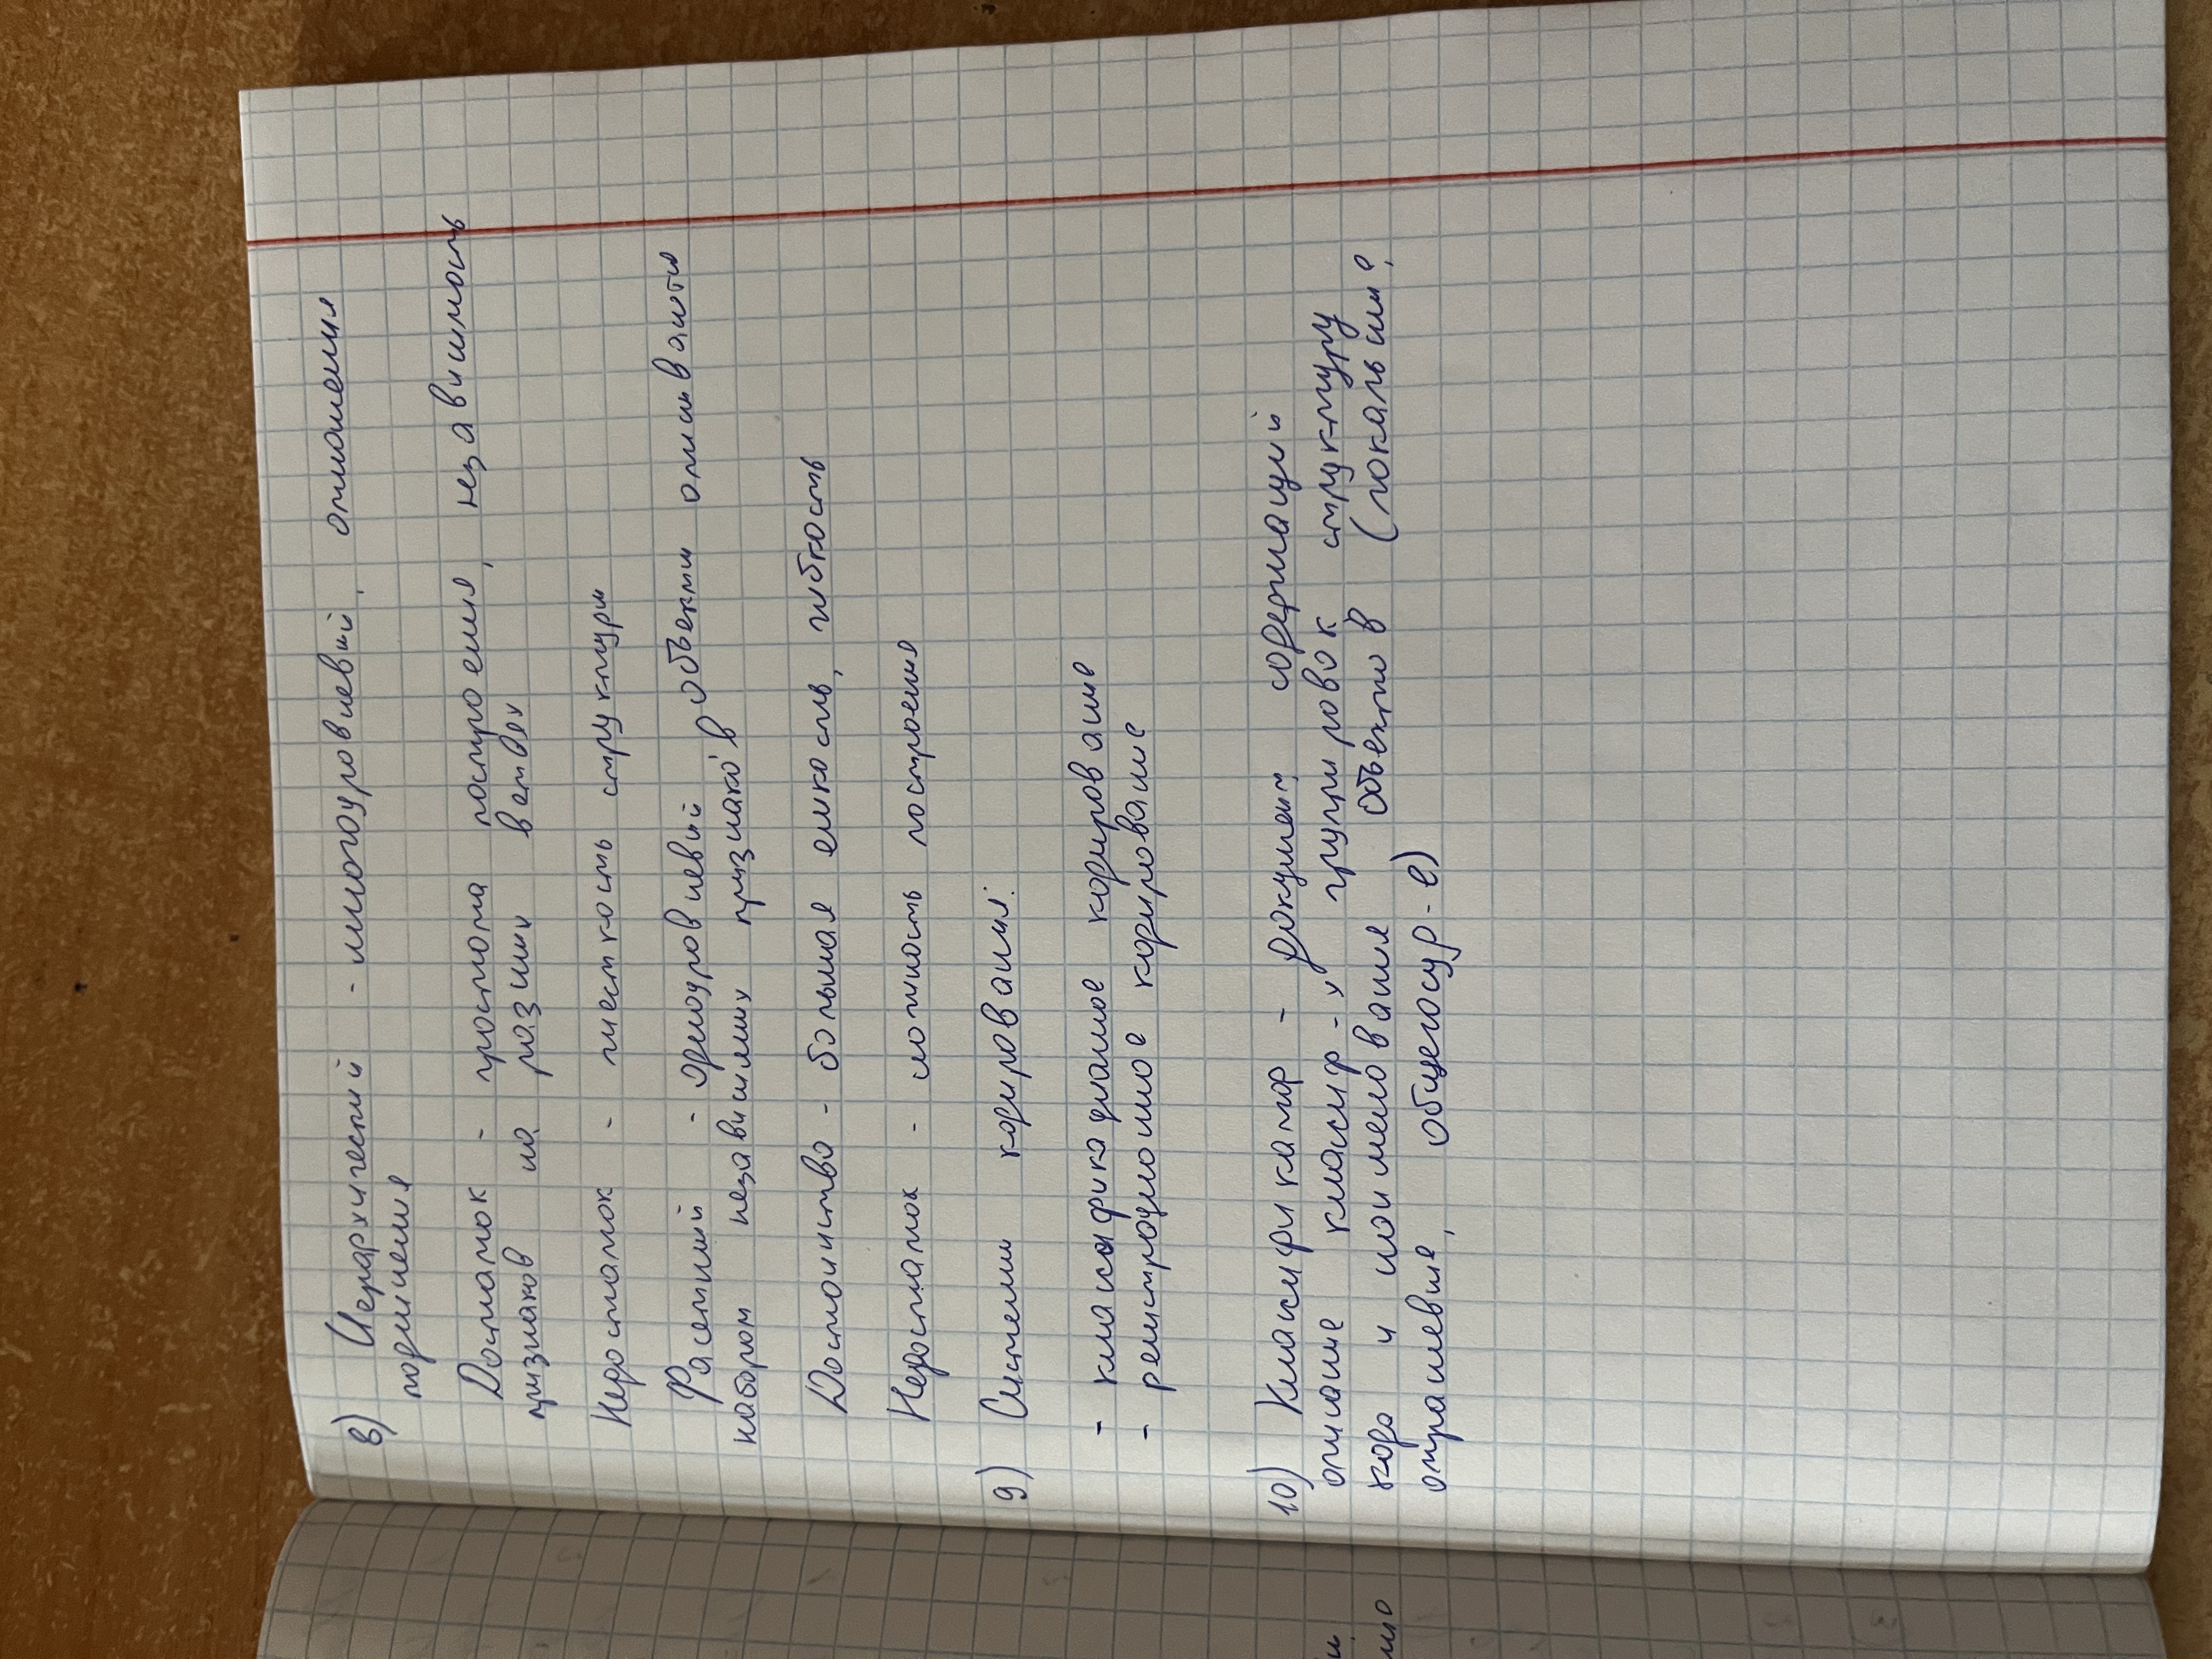 8) Иерархический - многоуровневый, отношения
подчинения
Достаток - простота построения, независимость
признаков на разных ветвях
Недостаток - жесткость структуры
Фасетный - одноуровневый, объекты описываются
набором независимых признаков
Достоинство - большая емкость, гибкость
Недостаток - сложность построения
9) Системы кодирования:
- классификационное кодирование
- регистрационное кодирование
10) Классификатор - документ содержащий
описание классиф-х группировок структуру
код и наименования объектов (локальные,
отраслевые, общегосуд-е)